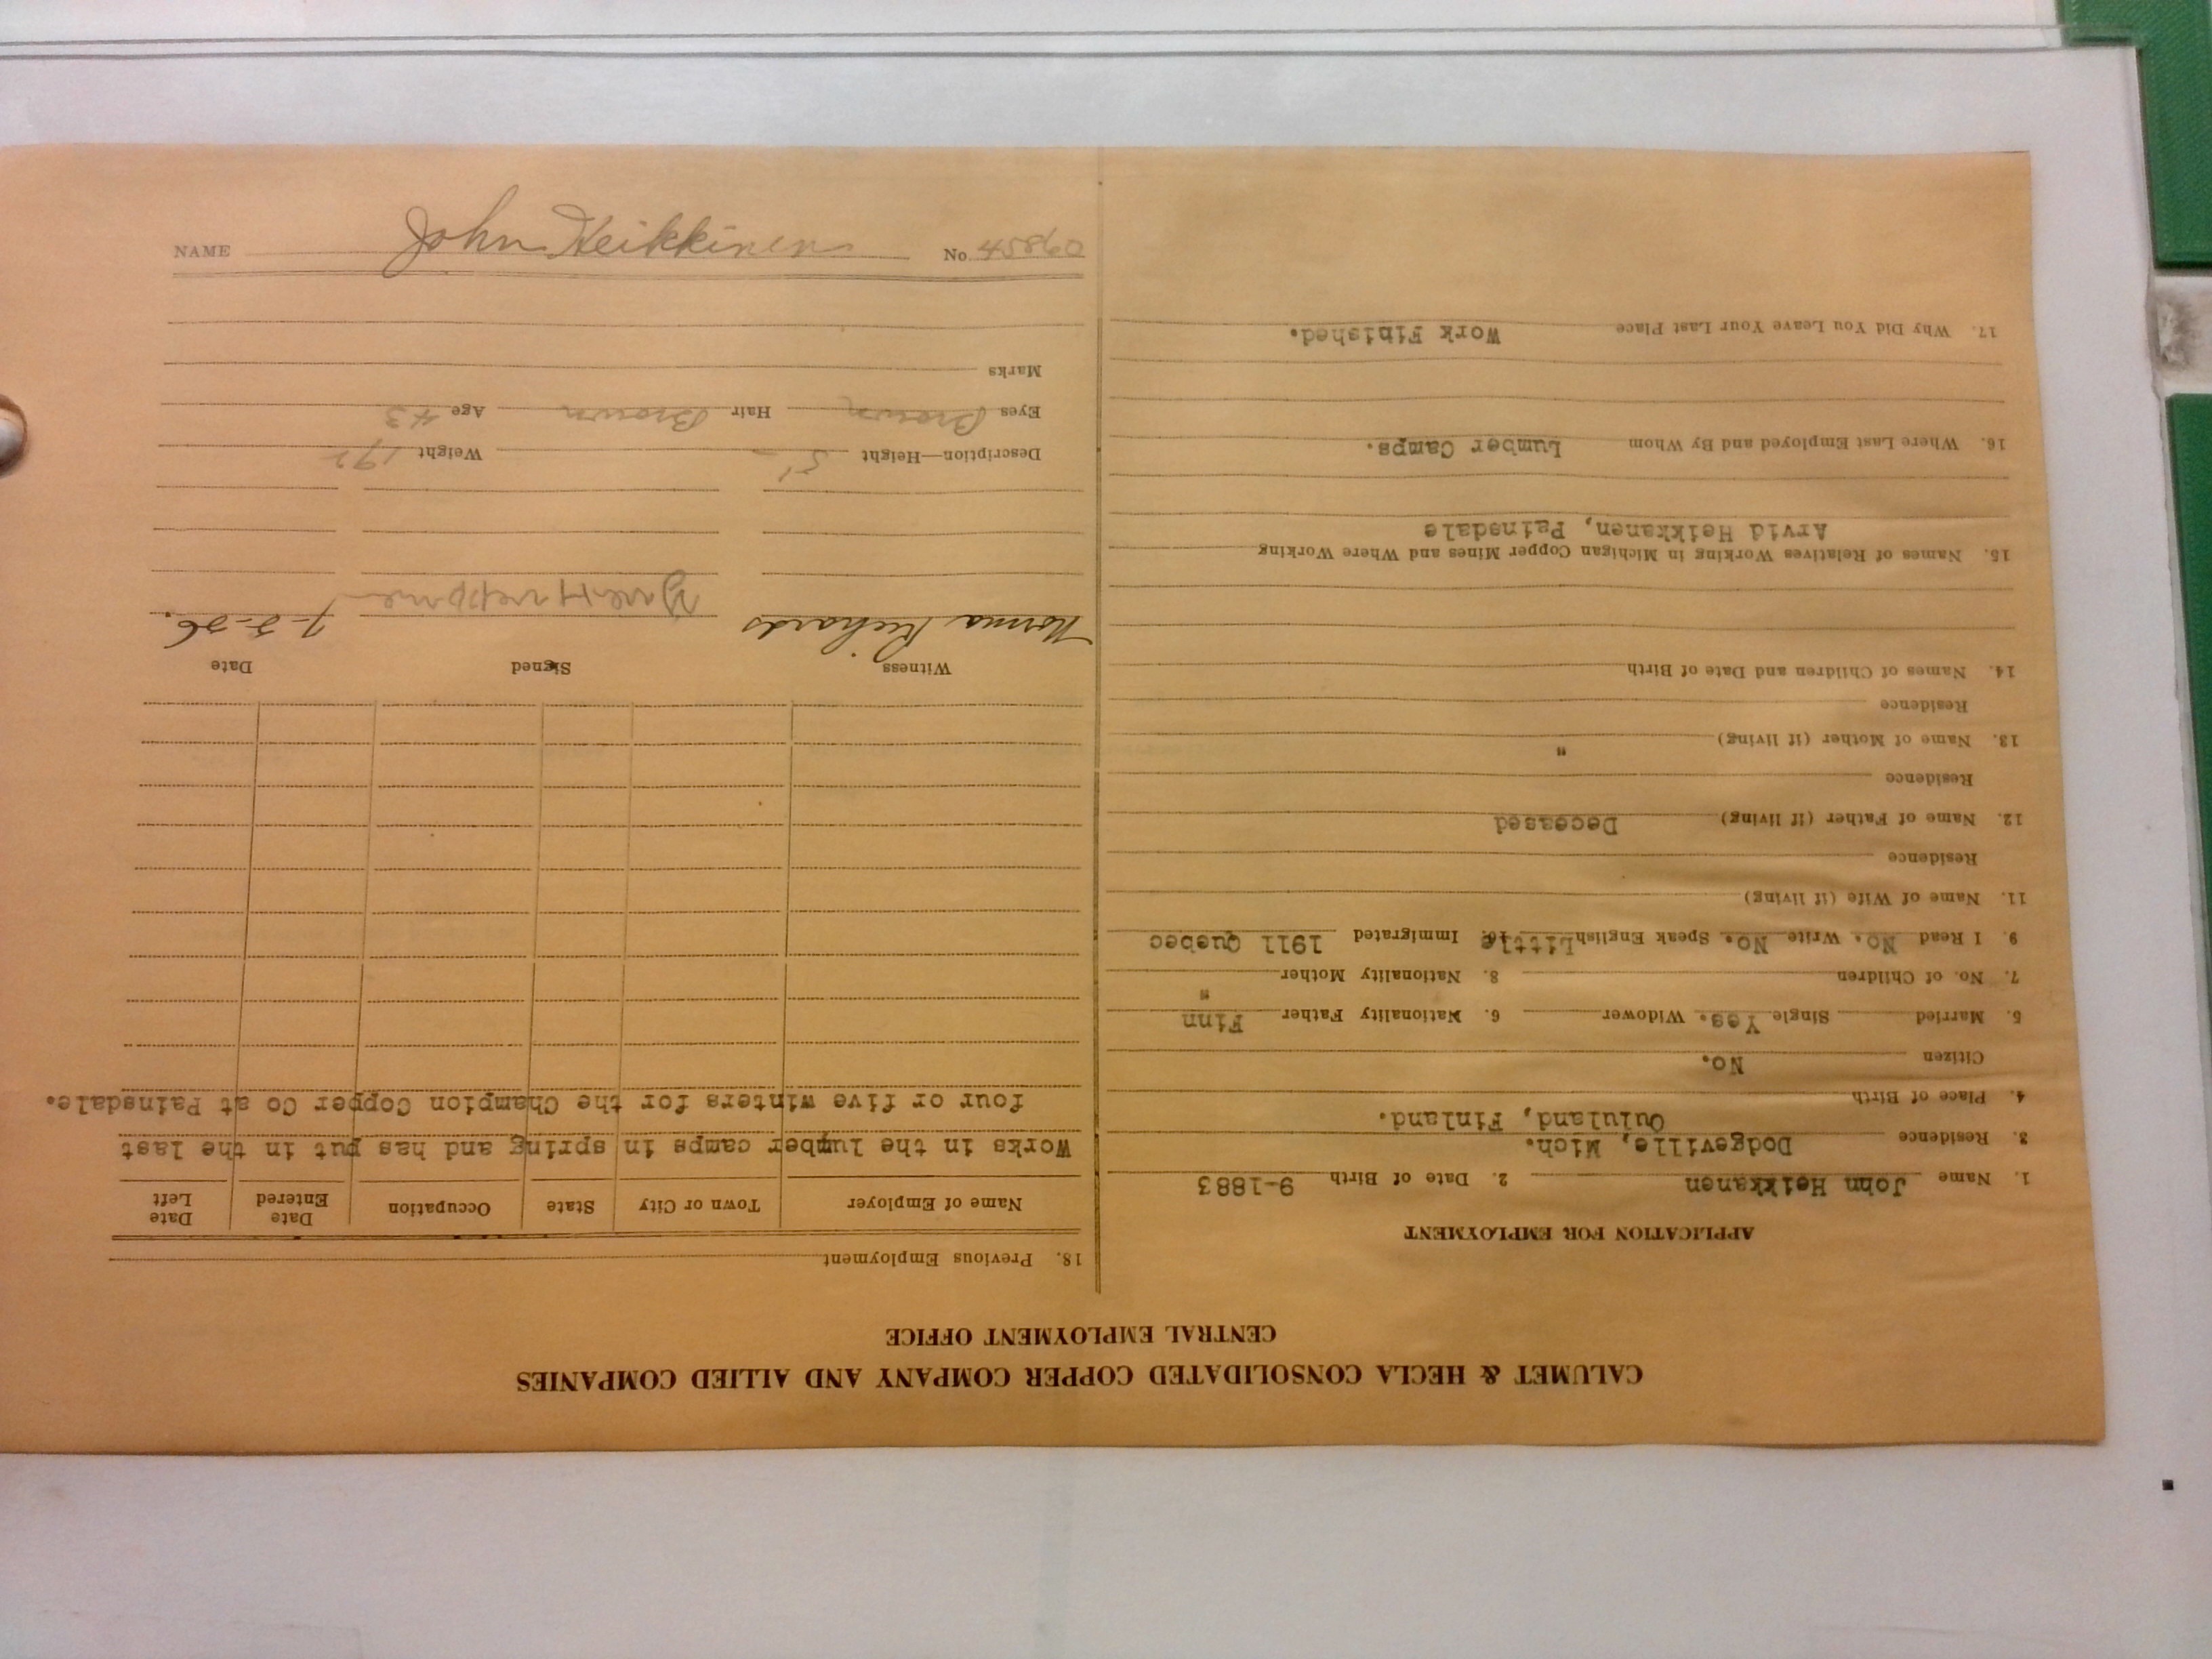 CALUMET & HECLA CONSOLIDATED COPPER COMPANY AND ALLIED COMPANIES
CENTRAL EMPLOYMENT OFFICE
APPLICATION FOR EMPLOYMENT
1. Name John Heikkanen 2. Date of Birth 9-1883
3. Residence Dodgeville, Mich.
4. Place of Birth Oululand, Finland.
Citizen No.
5. Married Single Yes. Widower 6. Nationality Father Finn
7. No. of Children 8. Nationality Mother "
9. I Read No. Write No. Speak English Little 10. Immigrated 1911 Quebec
11. Name of Wife (if living)
Residence
12. Name of Father (if living) Deceased
Residence
13. Name of Mother (if living) "
Residence
14. Names of Children and Date of Birth
15. Names of Relatives Working in Michigan Copper Mines and Where Working
Arvid Heikkanen, Painsdale
16. Where Last Employed and By Whom Lumber Camps.
17. Why Did You Leave Your Last Place Work Finished.
18. Previous Employment
Name of Employer Town or City State Occupation Date Entered Date Left
Works in the lumber camps in spring and has put in the last
four or five winters for the Champion Copper Co at Painsdale.
Witness Signed Date
Norma Richards 7-2-26.
Description—Height 5' Weight
Eyes Brown Hair Brown Age 43
Marks
NAME John Heikkinen No. 45860